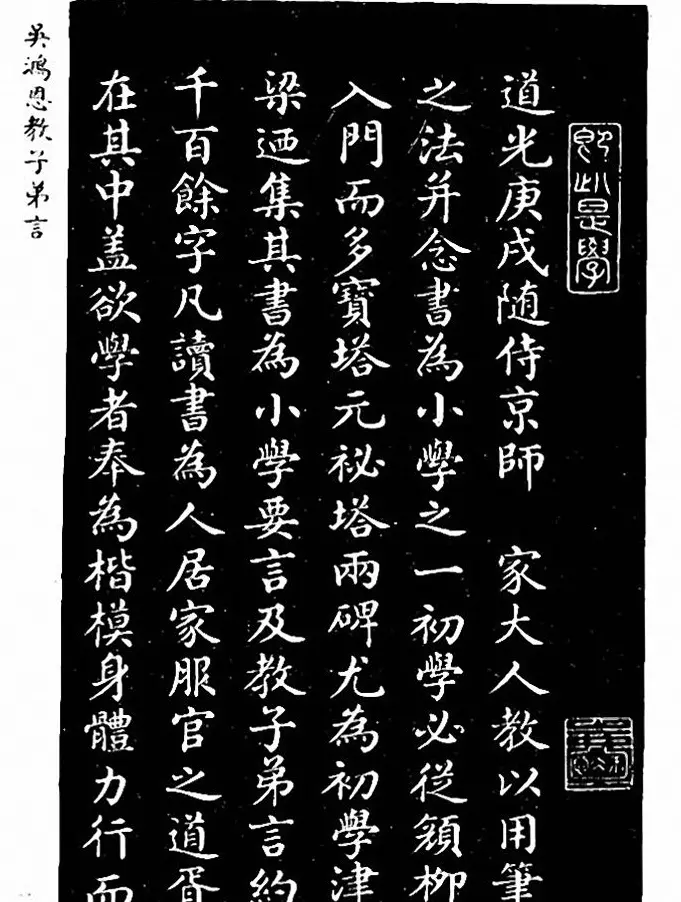 即此是學
道光庚戌随侍京師 家大人教以用筆
之法并念書為小學之一初學必從顏柳
入門而多寶塔元祕塔兩碑尤為初學津
梁迺集其書為小學要言及教子弟言約
千百餘字凡讀書為人居家服官之道胥
在其中盖欲學者奉為楷模身體力行而
吳鴻恩教子弟言